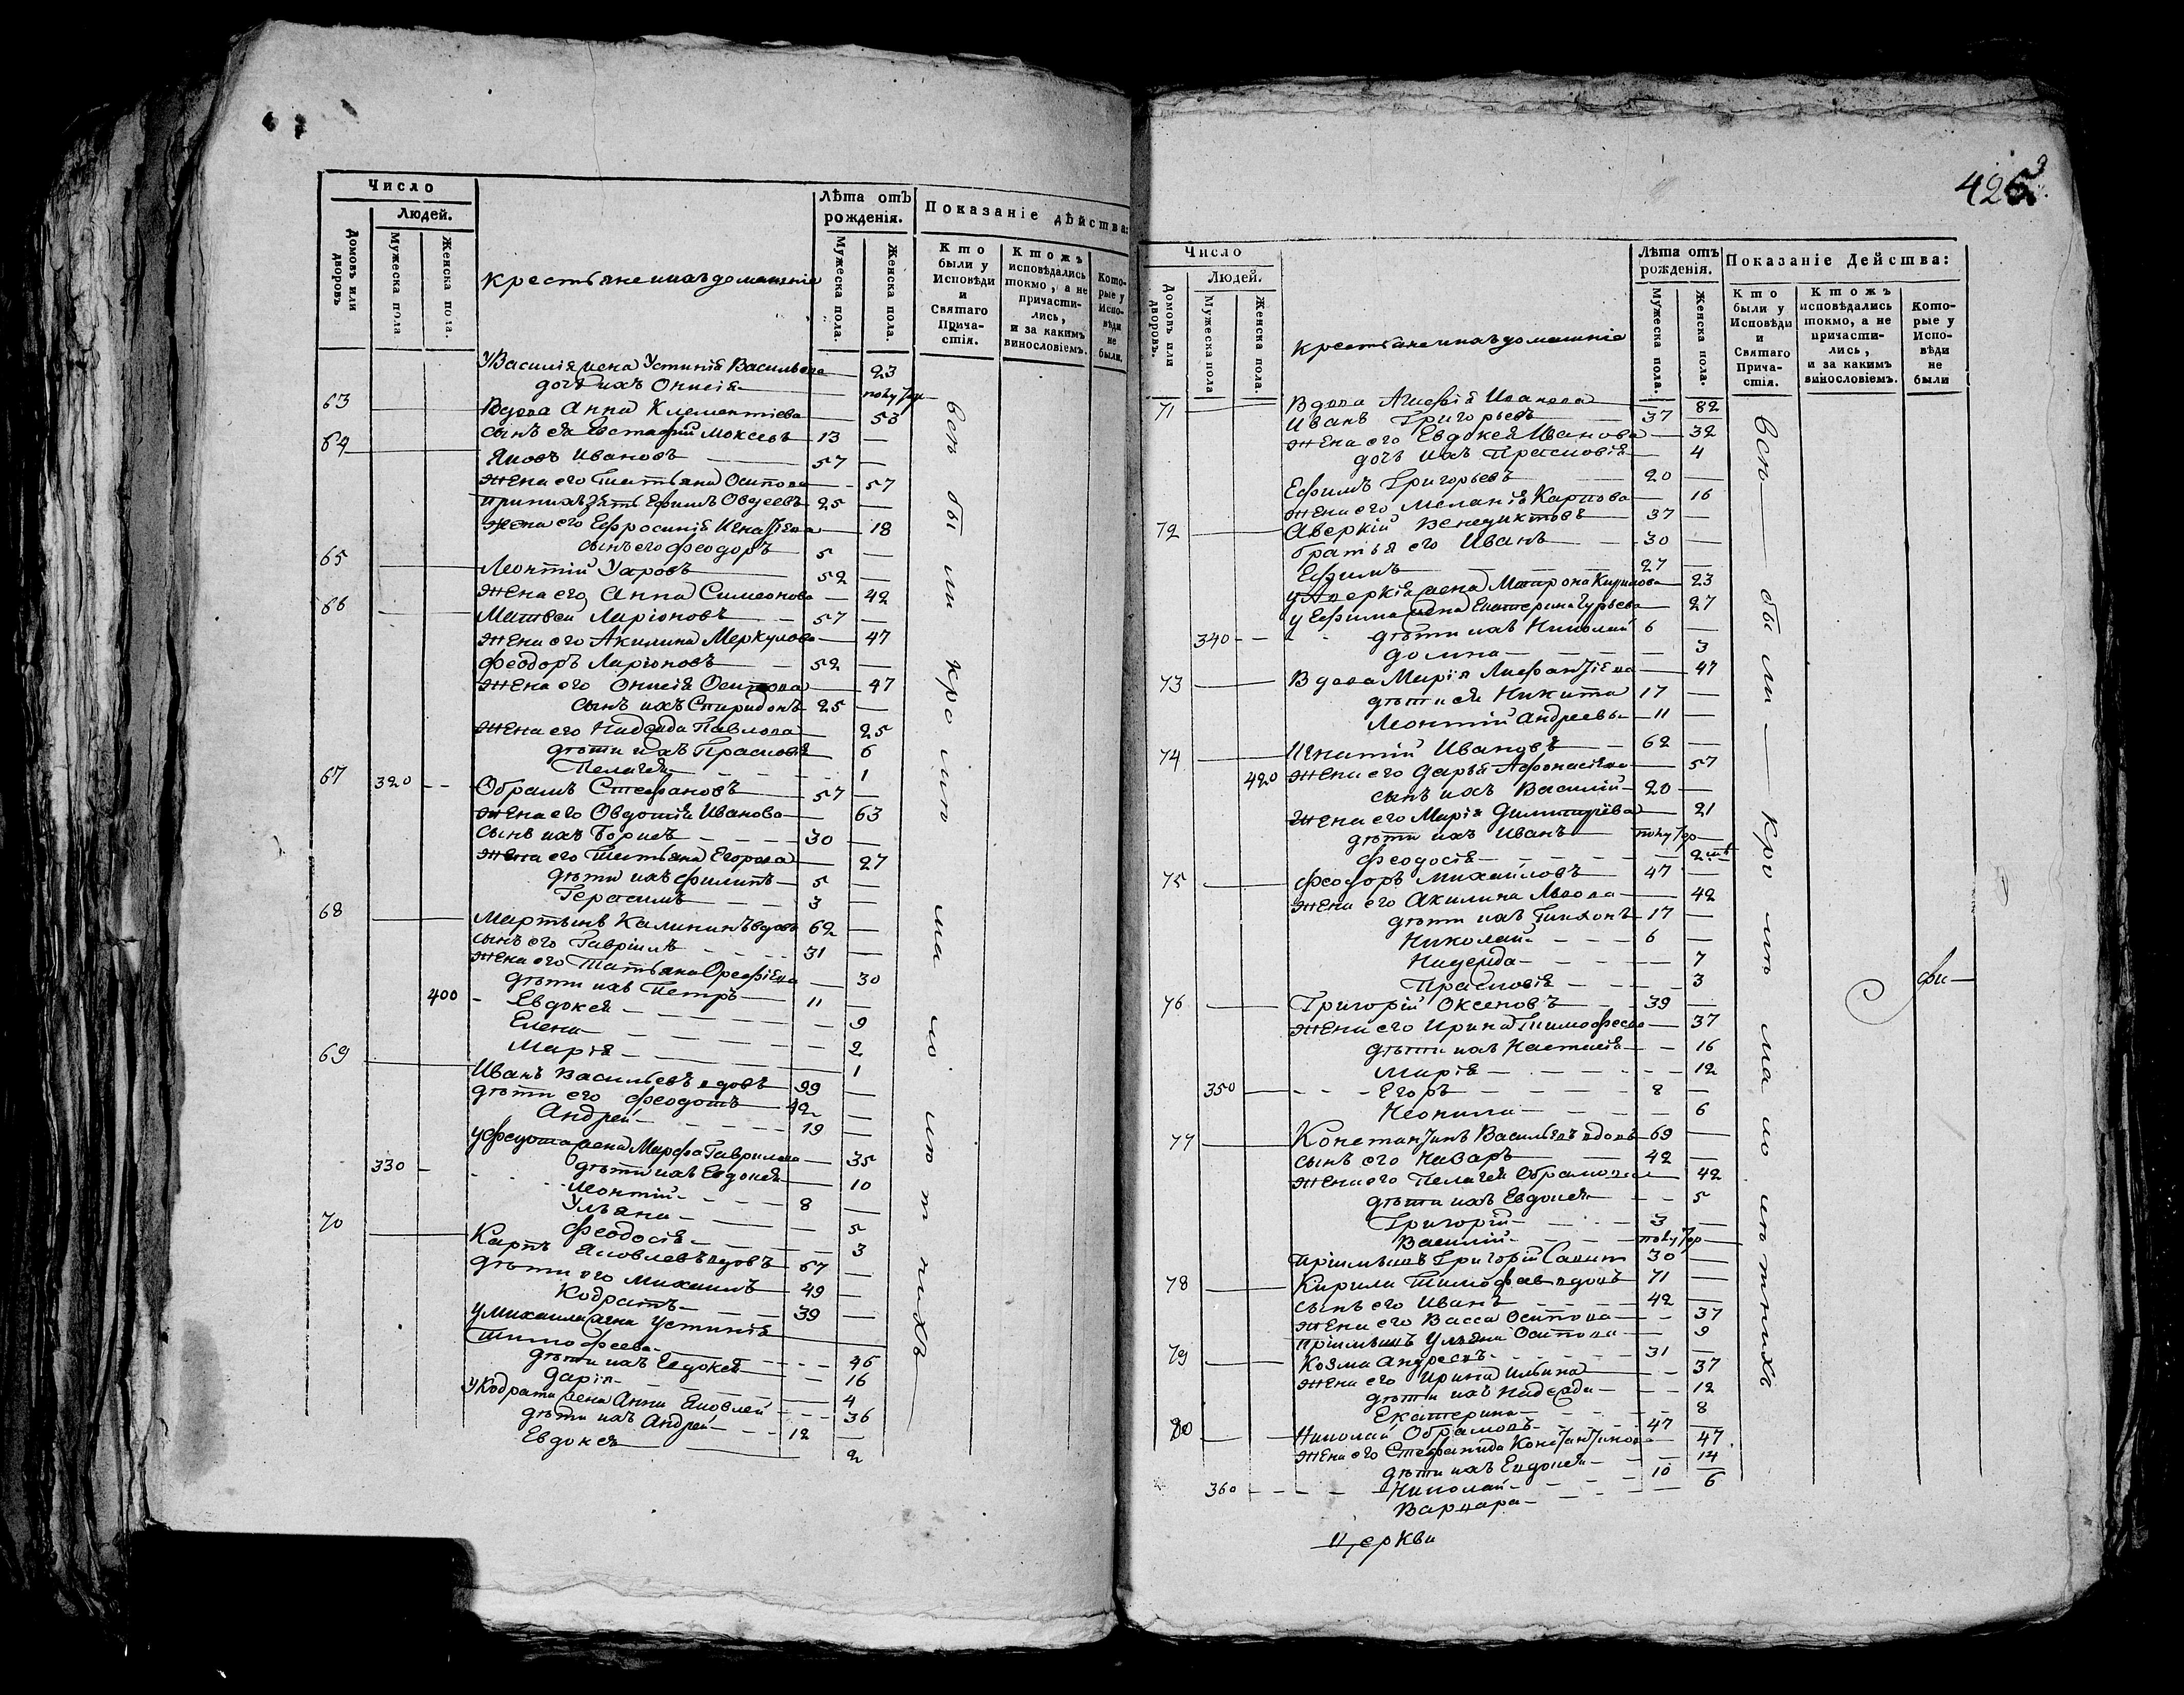 Число
Людей.
Домовъ или дворовъ
Мужеска пола
Женска пола.
Крестьяне и ихъ домашніе
Лѣта отъ рожденія.
Мужеска пола.
Женска пола.
Показаніе дѣйства:
Кто были у Исповѣди и Святаго Прича-стія.
Ктожъ исповѣдались токмо, а не причасти-лись, и за какимъ винословіемъ.
Кото-рые у Испо-вѣди не были.
У Василія жена Устинія Васильева 23
дочь ихъ Онисія полугод
63 Вдова Анна Клементіева 53
сынъ ея Евстафій Моксевъ 13
64 Яковъ Ивановъ 57
Жена его Татьяна Осипова 57
приихъ зять Ефимъ Овдеевъ 25
Жена его Ефросинія Игнатіева 18
сынъ его Феодоръ 5
65 Леонтій Уаровъ 52
Жена его Анна Симеонова 42
66 Матвей Ларіоновъ 57
Жена его Акилина Меркулова 47
Феодоръ Ларіоновъ 52
Жена его Онисія Осипова 47
сынъ ихъ Спиридонъ 25
Жена его Надежда Павлова 25
дѣти ихъ Прасковія 6
Пелагея 1
67 320 Обрамъ Стефановъ 57
Жена его Овдотія Иванова 63
сынъ ихъ Борисъ 30
Жена его Татьяна Егорова 27
дѣти ихъ Филипъ 5
Герасимъ 3
68 Мартынъ Калининъ вдовъ 62
сынъ его Гавріилъ 31
Жена его Татьяна Орефіева 30
дѣти ихъ Петръ 11
400 Евдокея 9
Елена 2
Марія 1
69 Иванъ Васильевъ вдовъ 99
дѣти его Феодотъ 42
Андрей 19
у Феодота жена Марфа Гаврилова 35
330 дѣти ихъ Евдокея 10
Леонтій 8
Ульяна 5
Феодосія 3
70 Карпъ Яковлевъ вдовъ 67
дѣти его Михаилъ 49
Кодратъ 39
у Михаила жена Устинія
Тимофеева 46
дѣти ихъ Евдокея 16
Дарія 4
У Кодрата жена Анна Яковлей 36
дѣти ихъ Андрей 12
Евдокея 2
всѣ были кромѣ малолѣтнихъ
426
Число
Людей.
Домовъ или дворовъ.
Мужеска пола
Женска пола.
крестьяне и ихъ домашніе
Лѣта отъ рожденія.
Мужеска пола.
Женска пола.
Показаніе Действа:
Кто были у Исповѣди и Святаго Прича-стія.
Ктожъ исповѣдались токмо, а не причасти-лись, и за какимъ винословіемъ.
Кото-рые у Испо-вѣди не были
71 Вдова Агафія Иванова 82
Иванъ Григорьевъ 37
Жена его Евдокея Иванова 32
дочь ихъ Прасковія 4
Ефимъ Григорьевъ 20
Жена его Меланія Карпова 16
72 Аверкій Венедиктовъ 37
братья его Иванъ 30
Ефимъ 27
у Аверкія жена Матрона Кирилова 23
у Ефима жена Екатерина Гурьева 27
340 дѣти ихъ Николай 6
Домна 3
73 Вдова Марія Лифантіева 47
дѣти ея Никита 17
Леонтій Андреевы 11
74 Игнатій Ивановъ 62
420 Жена его Дарья Афонасіева 57
сынъ ихъ Василій 20
Жена его Марія Димитріева 21
дѣти ихъ Иванъ полугод
Феодосія 2
75 Феодоръ Михайловъ 47
Жена его Акилина Львова 42
дѣти ихъ Тихонъ 17
Николай 6
Надежда 7
Прасковія 3
76 Григорій Оксеновъ 39
Жена его Ирина Тимофеева 37
дѣти ихъ Настасія 16
Марія 12
350 Егоръ 8
Неонила 6
77 Константинъ Васильевъ вдовъ 69
сынъ его Назаръ 42
Жена его Пелагея Обрамова 42
дѣти ихъ Евдокея 5
Григорій 3
Василій полугод
Пріимышъ Григорій Савит 30
78 Кирила Тимофѣевъ вдовъ 71
сынъ его Иванъ 42
Жена его Васса Осипова 37
Пріимышъ Ульяна Осипова 9
79 Козма Андреевъ 31
Жена его Ирина Ильина 37
дѣти ихъ Надежда 12
Екатерина 8
80 Николай Обрамовъ 47
Жена его Стефанида Константинова 47
дѣти ихъ Евдокея 14
360 Николай 10
Варвара 6
всѣ были кромѣ малолѣтнихъ
Церкви